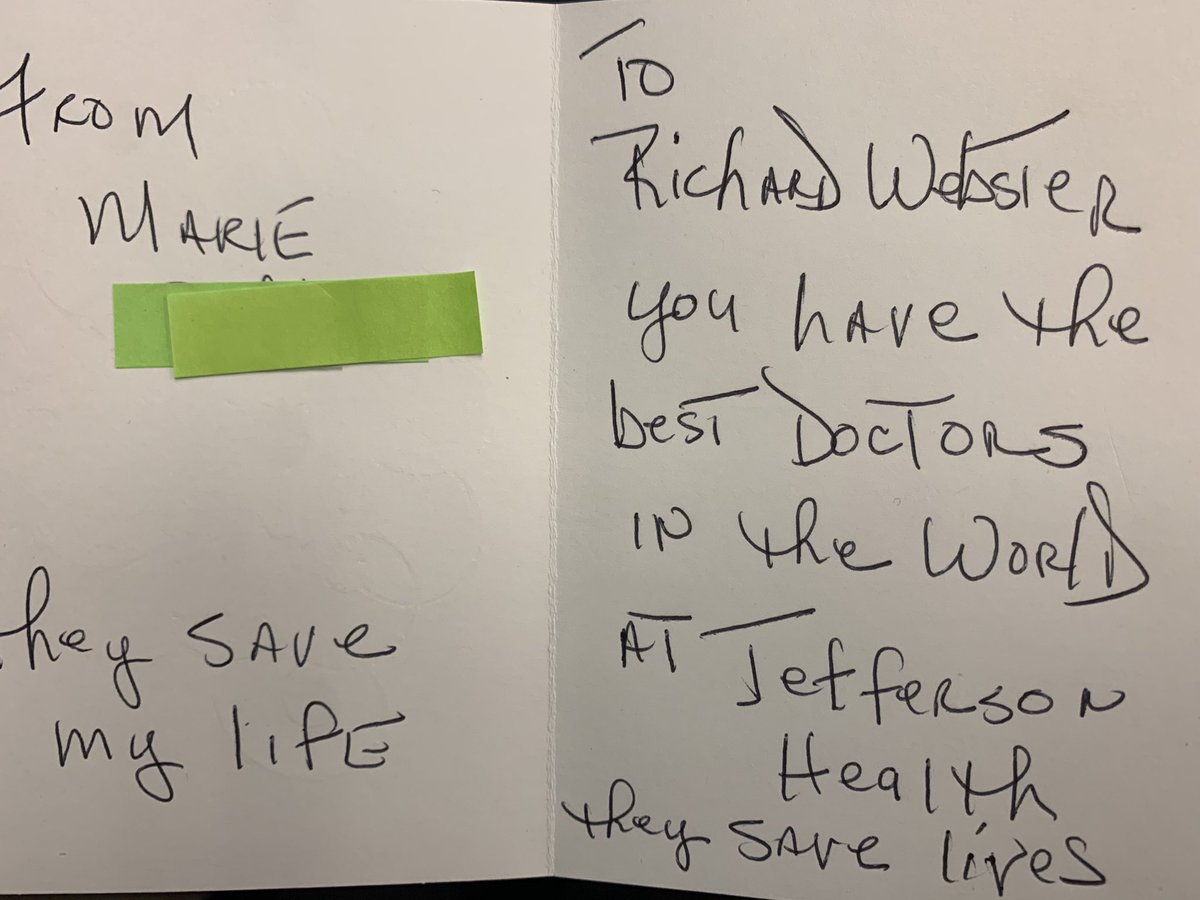 FROM
MARIE
they SAVE
my lifE
TO
RichARD WebsTER
you hAVE the
besT DOCTORS
IN the WORlD
AT JeffERSON
HealTh
they SAVE lives